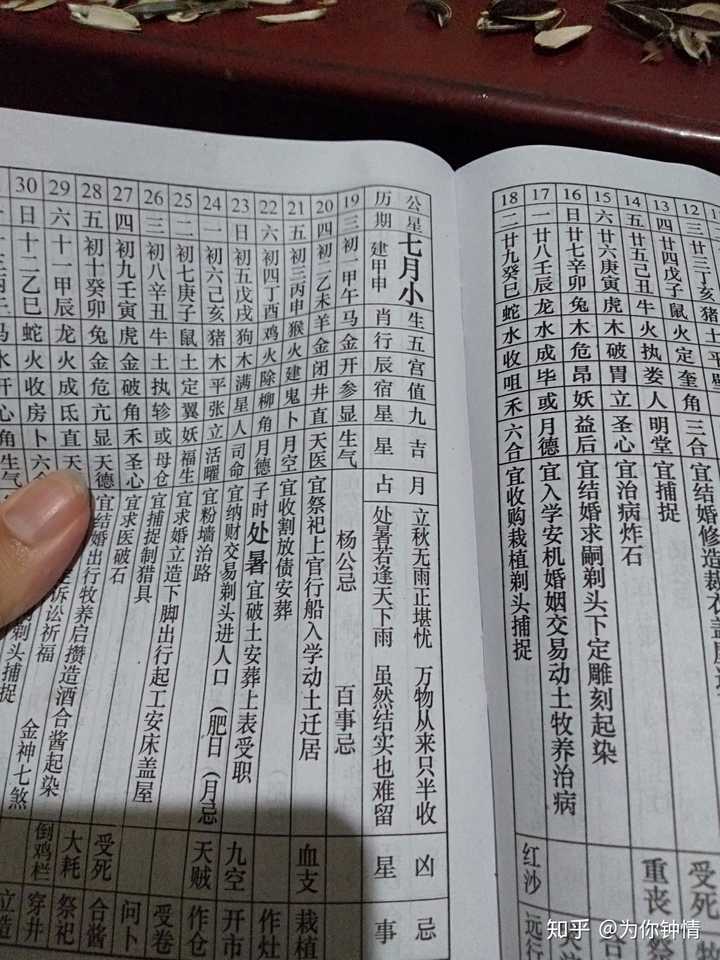 12 三 廿三丁亥 猪 土 平
13 四 廿四戊子 鼠 火 定 奎 角 三合 宜结婚修造裁衣盖屋 受死
14 五 廿五己丑 牛 火 执 娄 人 明堂 宜捕捉 重丧
15 六 廿六庚寅 虎 木 破 胃 立 圣心 宜治病炸石
16 日 廿七辛卯 兔 木 危 昴 妖 益后 宜结婚求嗣剃头下定雕刻起染
17 一 廿八壬辰 龙 水 成 毕 或 月德 宜入学安机婚姻交易动土牧养治病
18 二 廿九癸巳 蛇 水 收 咀 禾 六合 宜收购栽植剃头捕捉 红沙 远行
公历 星期 七月小 建甲申 生肖 五行 宫辰 值宿 九星 吉星 月占 立秋无雨正堪忧 万物从来只半收 凶星 忌事
处暑若逢天下雨 虽然结实也难留
19 三 初一甲午 马 金 开 参 显 生气 杨公忌 百事忌
20 四 初二乙未 羊 金 闭 井 直 天医 宜祭祀上官行船入学动土迁居 血支 栽植
21 五 初三丙申 猴 火 建 鬼 卜 月空 宜收割放债安葬 作灶
22 六 初四丁酉 鸡 火 除 柳 角 月德 子时处暑 宜破土安葬上表受职 九空 开市
23 日 初五戊戌 狗 木 满 星 人 司命 宜纳财交易剃头进人口(肥日(月忌 天贼 作仓
24 一 初六己亥 猪 木 平 张 立 活曜 宜粉墙治路
25 二 初七庚子 鼠 土 定 翼 妖 福生 宜求婚立造下脚出行起工安床盖屋 受卷
26 三 初八辛丑 牛 土 执 轸 或 母仓 宜捕捉制猎具 问卜
27 四 初九壬寅 虎 金 破 角 禾 圣心 宜求医破石
28 五 初十癸卯 兔 金 危 亢 显 天德 宜结婚出行牧养启攒造酒合酱起染 受死 合酱
29 六 十一甲辰 龙 火 成 氐 直 天 诉讼祈福 大耗 祭祀
30 日 十二乙巳 蛇 火 收 房 卜 六合 剃头捕捉 金神七煞 倒鸡栏 穿井
马 水 开 心 角 生气 立造
知乎 @为你钟情